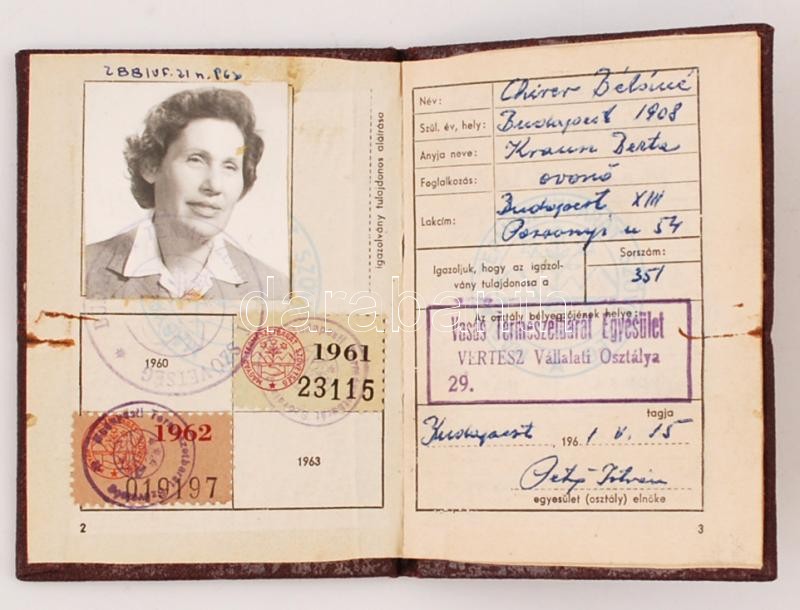 igazolvány tulajdonos aláírása
1960
1961
23115
1962
019197
1963
SZÖVETSÉG
2
Név: Chirer Béláné
Szül. év, hely: Budapest 1908
Anyja neve: Kraun Berta
Foglalkozás: ovonő
Lakcím: Budapest XIII
Pozsonyi u 54
Sorszám:
Igazoljuk, hogy az igazol-
vány tulajdonosa a 351
Az osztály bélyegzőjének helye:
Vasas Természetbarát Egyesület
VERTESZ Vállalati Osztálya
29.
tagja
Budapest, 1961 V. 15
István
egyesület (osztály) elnöke
3
darabanth